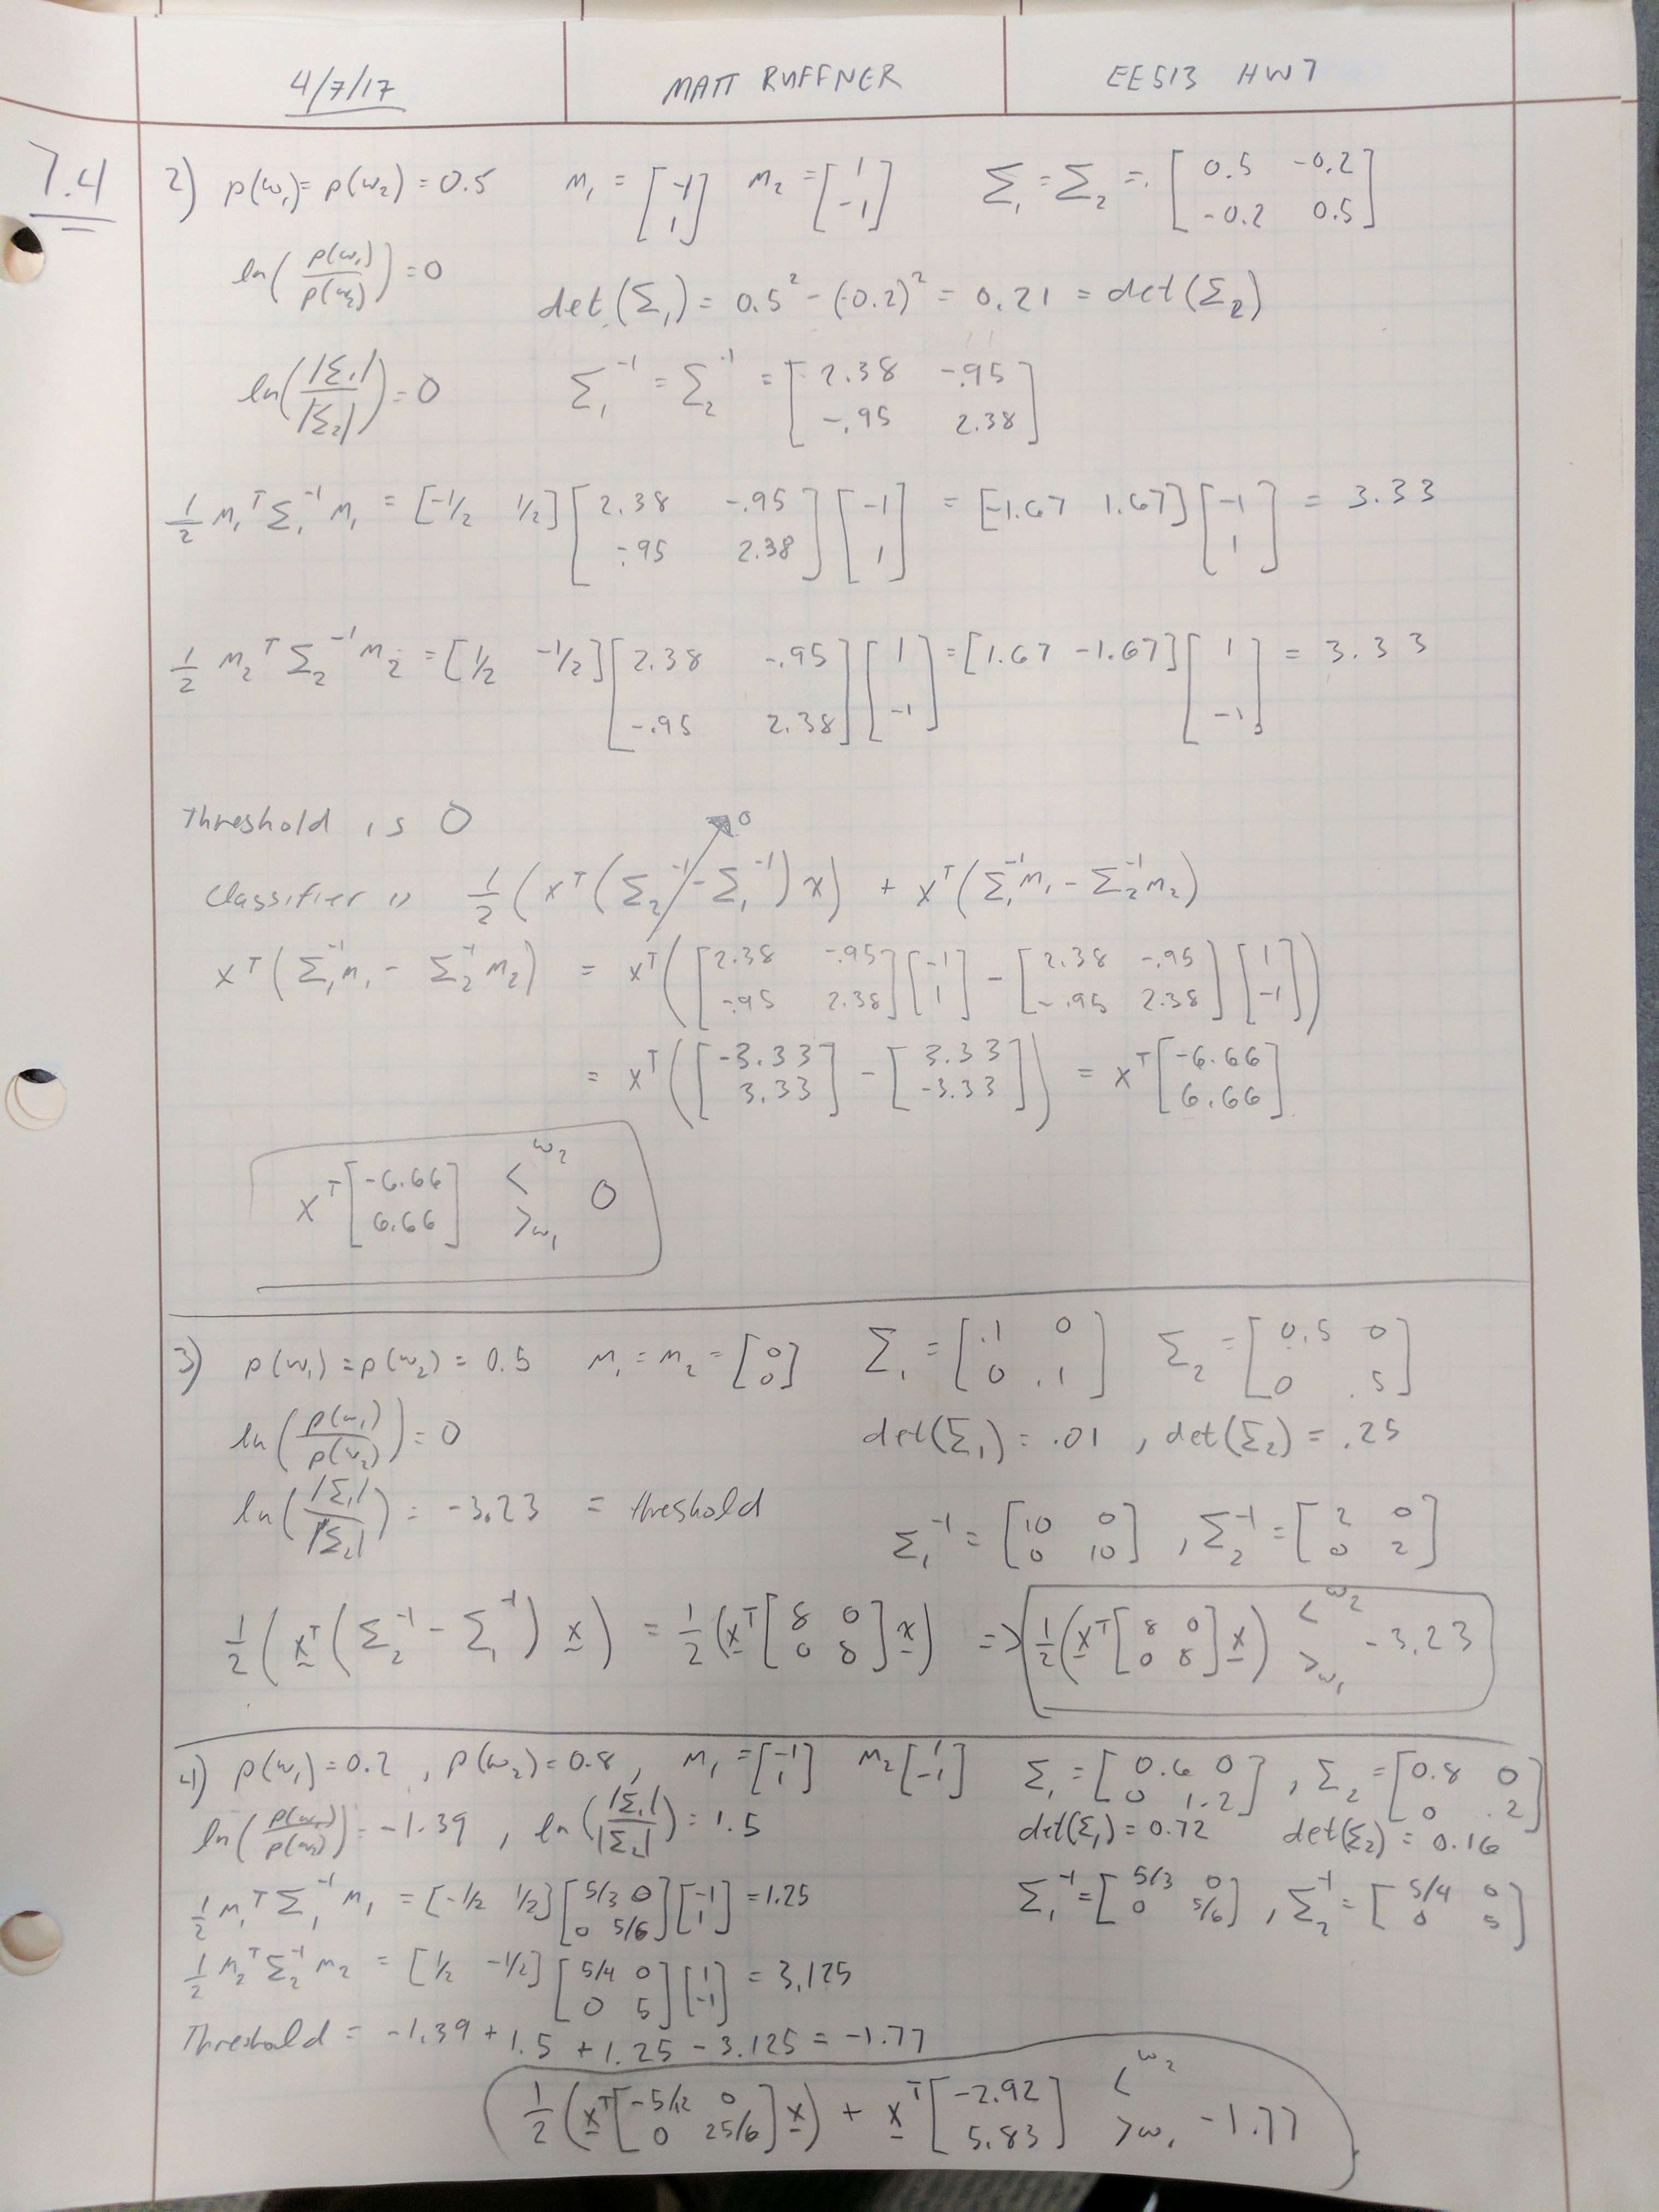 4/7/17 MATT RUFFNER EE513 HW7
7.4
2) p(w₁) = p(w₂) = 0.5 m₁ = [-1; 1] m₂ = [1; -1] Σ₁ = Σ₂ = [0.5 -0.2; -0.2 0.5]
ln(p(w₁)/p(w₂)) = 0 det(Σ₁) = 0.5² - (-0.2)² = 0.21 = det(Σ₂)
ln(|Σ₁|/|Σ₂|) = 0 Σ₁⁻¹ = Σ₂⁻¹ = [2.38 -.95; -.95 2.38]
1/2 m₁ᵀ Σ₁⁻¹ m₁ = [-1/2 1/2] [2.38 -.95; -.95 2.38] [-1; 1] = [-1.67 1.67] [-1; 1] = 3.33
1/2 m₂ᵀ Σ₂⁻¹ m₂ = [1/2 -1/2] [2.38 -.95; -.95 2.38] [1; -1] = [1.67 -1.67] [1; -1] = 3.33
Threshold is 0
Classifier is 1/2 (xᵀ(Σ₂⁻¹ - Σ₁⁻¹) x) → 0 + xᵀ(Σ₁⁻¹m₁ - Σ₂⁻¹m₂)
xᵀ(Σ₁⁻¹m₁ - Σ₂⁻¹m₂) = xᵀ([2.38 -.95; -.95 2.38] [-1; 1] - [2.38 -.95; -.95 2.38] [1; -1])
= xᵀ([-3.33; 3.33] - [3.33; -3.33]) = xᵀ[-6.66; 6.66]
xᵀ[-6.66; 6.66] < w₂ > w₁ 0
3) p(w₁) = p(w₂) = 0.5 m₁ = m₂ = [0; 0] Σ₁ = [.1 0; 0 .1] Σ₂ = [0.5 0; 0 .5]
ln(p(w₁)/p(w₂)) = 0 det(Σ₁) = .01 , det(Σ₂) = .25
ln(|Σ₁|/|Σ₂|) = -3.23 = threshold Σ₁⁻¹ = [10 0; 0 10] , Σ₂⁻¹ = [2 0; 0 2]
1/2 (xᵀ(Σ₂⁻¹ - Σ₁⁻¹) x) = 1/2 (xᵀ[8 0; 0 8] x) => 1/2 (xᵀ[8 0; 0 8] x) < w₂ > w₁ -3.23
4) p(w₁) = 0.2 , p(w₂) = 0.8 , m₁ = [-1; 1] m₂ [1; -1] Σ₁ = [0.6 0; 0 1.2] , Σ₂ = [0.8 0; 0 .2]
ln(p(w₁)/p(w₂)) = -1.39 , ln(|Σ₁|/|Σ₂|) = 1.5 det(Σ₁) = 0.72 det(Σ₂) = 0.16
1/2 m₁ᵀ Σ₁⁻¹ m₁ = [-1/2 1/2] [5/3 0; 0 5/6] [-1; 1] = 1.25 Σ₁⁻¹ = [5/3 0; 0 5/6] , Σ₂⁻¹ = [5/4 0; 0 5]
1/2 m₂ᵀ Σ₂⁻¹ m₂ = [1/2 -1/2] [5/4 0; 0 5] [1; -1] = 3.125
Threshold = -1.39 + 1.5 + 1.25 - 3.125 = -1.77
1/2 (xᵀ[-5/12 0; 0 25/6] x) + xᵀ[-2.92; 5.83] < w₂ > w₁ -1.77